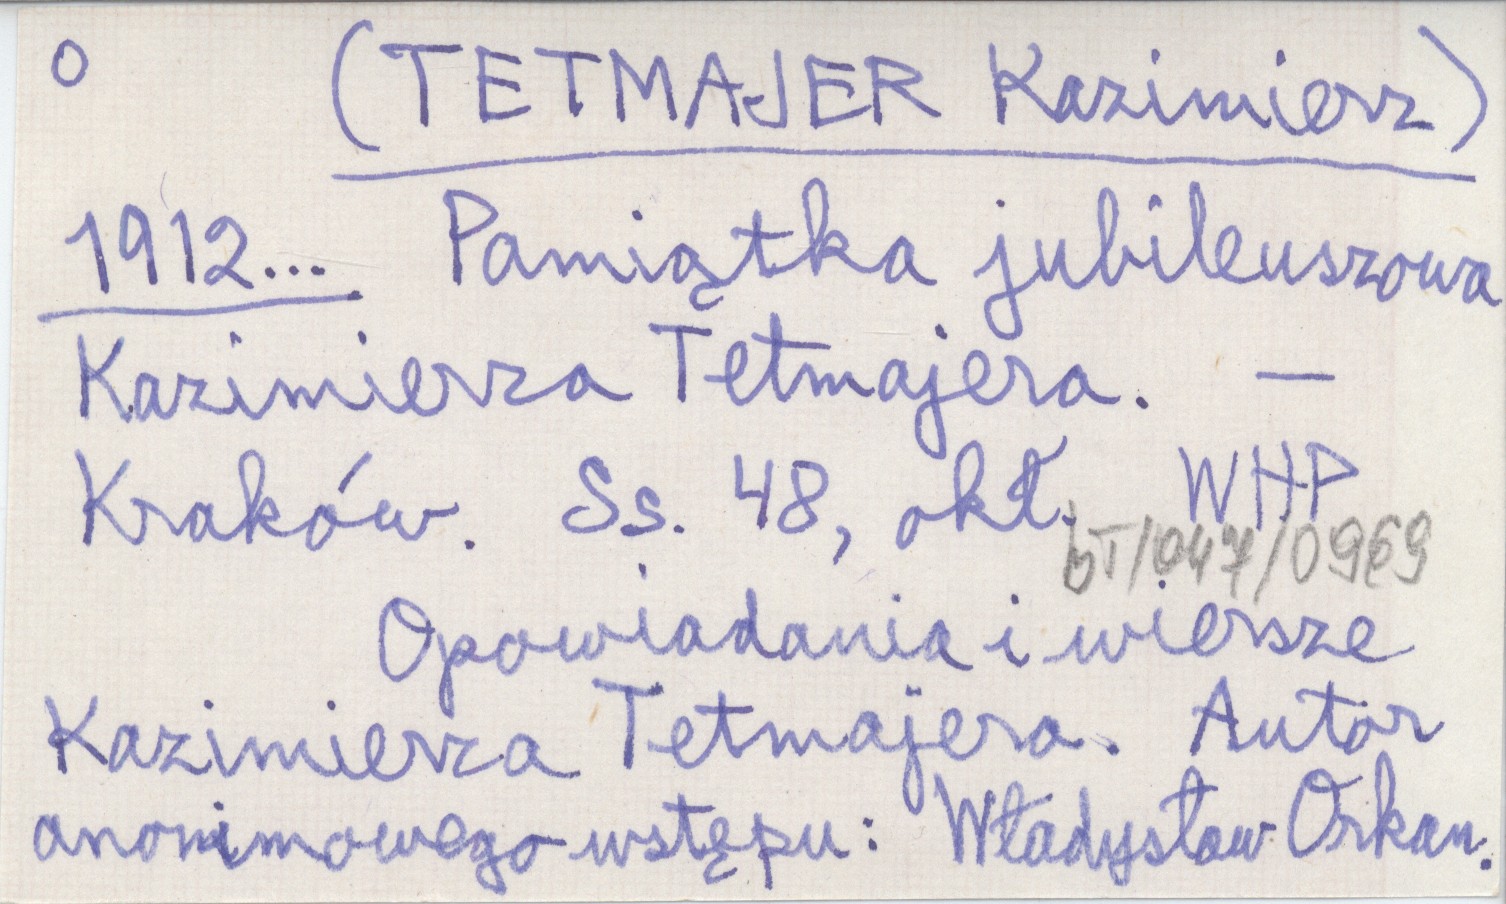 O (TETMAJER Kazimierz)
1912... Pamiątka jubileuszowa
Kazimierza Tetmajera. —
Kraków. Ss. 48, okł. WHP
bT/047/0969
Opowiadania i wiersze
Kazimierza Tetmajera. Autor
anonimowego wstępu: Władysław Orkan.